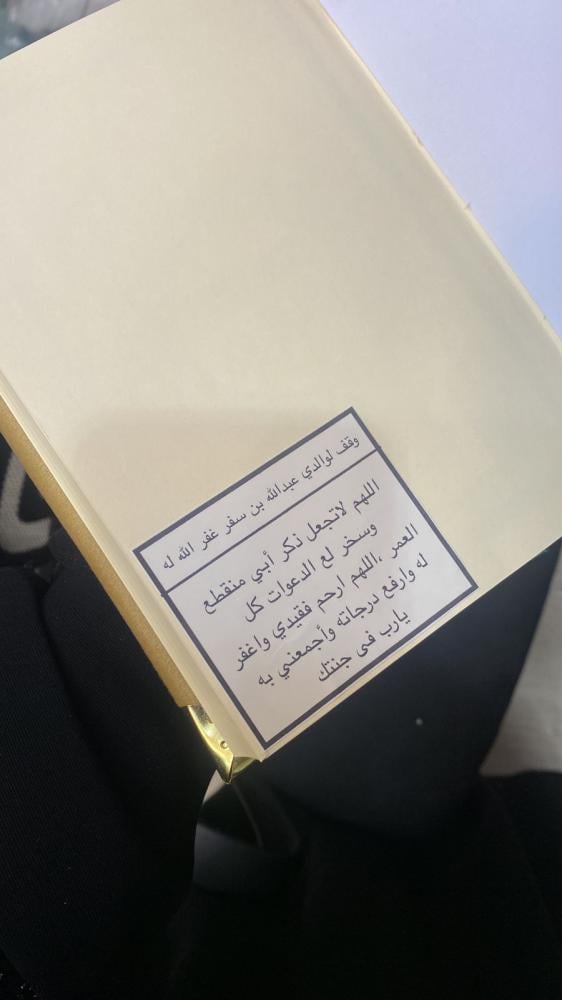 وقف لوالدي عبدالله بن سفر غفر الله له
اللهم لاتجعل ذكر أبي منقطع
وسخر لع الدعوات كل
العمر ،اللهم ارحم فقيدي واغفر
له وارفع درجاته وأجمعني به
يارب في جنتك